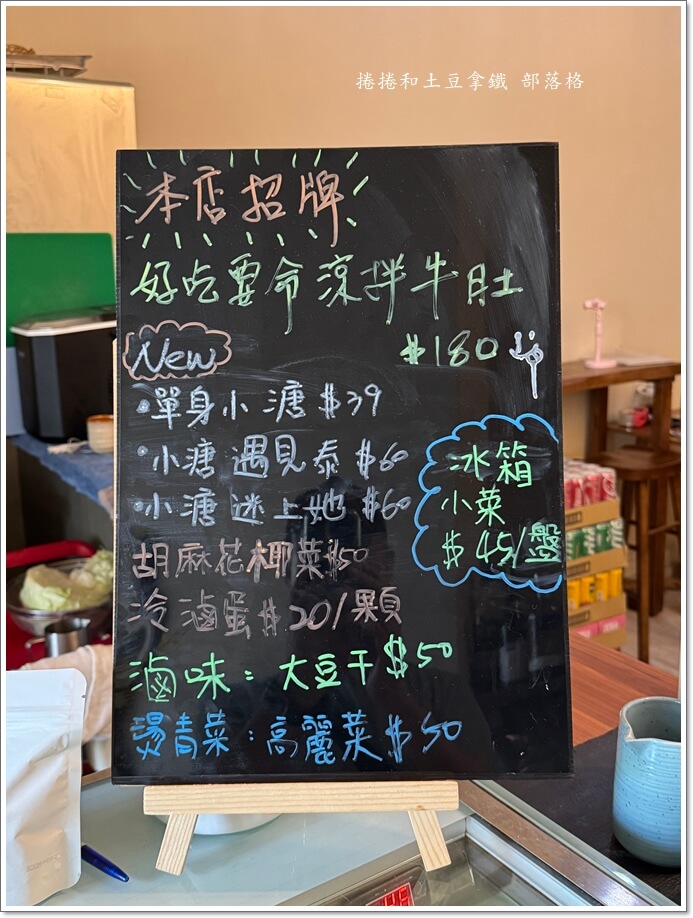 捲捲和土豆拿鐵 部落格
本店招牌
好吃要命涼拌牛肚
$180
New
·單身小溏 $39
·小溏遇見泰 $60
·小溏迷上她 $60
胡麻花椰菜$50
冷滷蛋$20/顆
滷味:大豆干$50
燙青菜:高麗菜$50
冰箱
小菜
$45/盤